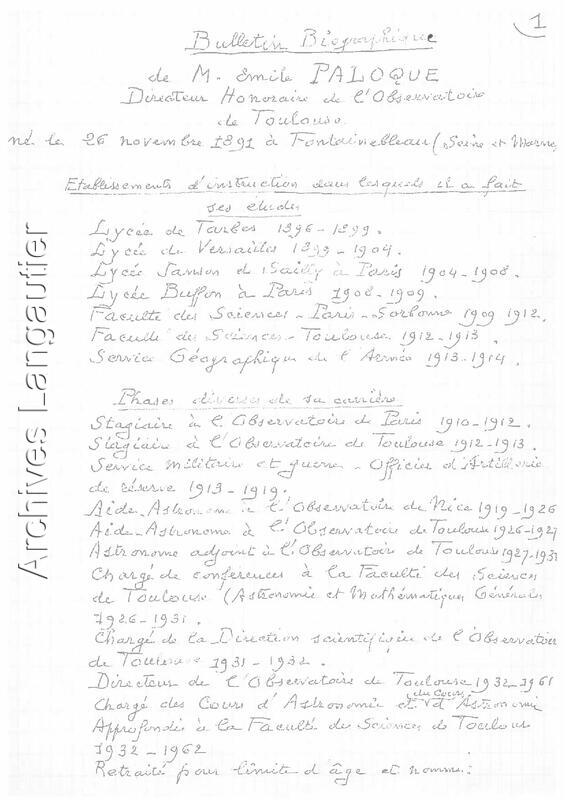 1
Bulletin Biographique
de M. Emile PALOQUE
Directeur Honoraire de l'Observatoire
de Toulouse
né le 26 novembre 1891 à Fontainebleau (Seine et Marne
Etablissements d'instruction dans lesquels il a fait
ses études
Lycée de Tarbes 1896-1899.
Lycée de Versailles 1899-1904.
Lycée Janson d Sailly à Paris 1904-1908.
Lycée Buffon à Paris 1908-1909.
Faculté des Sciences - Paris - Sorbonne 1909 1912.
Faculté des Sciences - Toulouse 1912-1913
Service Géographique de l'Armée 1913-1914.
Phases diverses de sa carrière
Stagiaire à l'Observatoire de Paris 1910-1912.
Stagiaire à l'Observatoire de Toulouse 1912-1913.
Service militaire et guerre - Officier d'Artillerie
de réserve 1913-1919.
Aide-Astronome à l'Observatoire de Nice 1919-1926
Aide-Astronome à l'Observatoire de Toulouse 1926-1927
Astronome adjoint à l'Observatoire de Toulouse 1927-1931
Chargé de conférences à la Faculté des Sciences
de Toulouse (Astronomie et Mathématiques Générales
1926-1931.
Chargé de la Direction scientifique de l'Observatoire
de Toulouse 1931-1932.
Directeur de l'Observatoire de Toulouse 1932-1961
Chargé des Cours d'Astronomie et du Cours d'Astronomie
Approfondie à la Faculté des Sciences de Toulouse
1932-1962
Retraité pour limite d'âge et nommé:
Archives Langautier